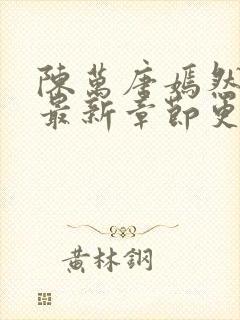 陳萬唐嫣然
最新章節更
黃林鋼